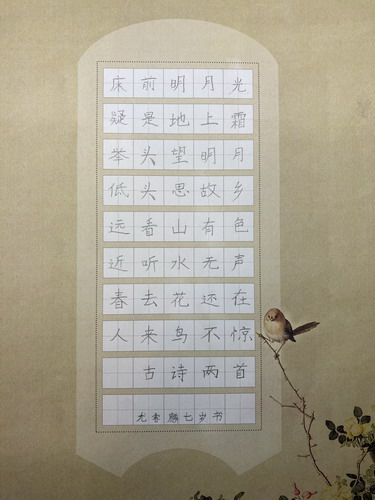 床前明月光
疑是地上霜
举头望明月
低头思故乡
远看山有色
近听水无声
春去花还在
人来鸟不惊
古诗两首
七岁书